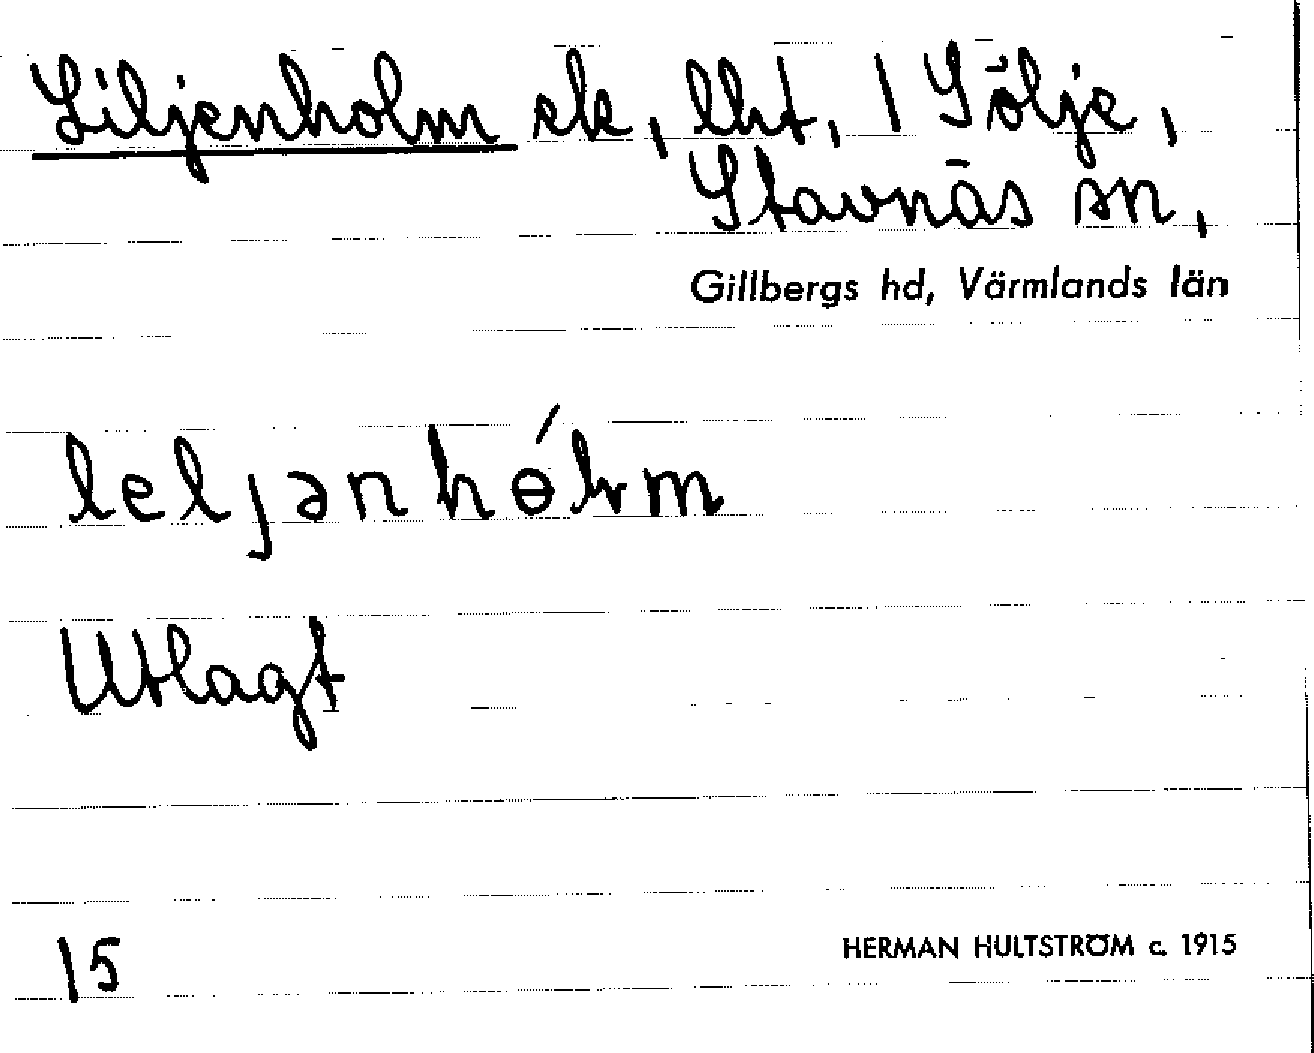 Liljenholm ek, lht, 1 Sölje,
Stavnäs sn,
Gillbergs hd, Värmlands län
leljənhɵ́lm
Utlagt
15
HERMAN HULTSTRÖM c. 1915